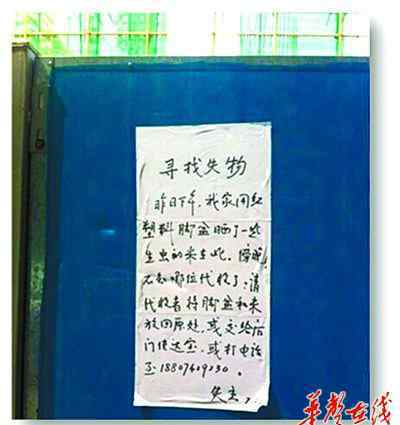 寻找失物
昨日下午,我家用红
塑料脚盆晒了一些
生虫的米在此,傍晚
不知哪位代收了,请
代收者将脚盆和米
放回原处,或交给后
门传达室,或打电话
至18807409230。
失主
华声在线